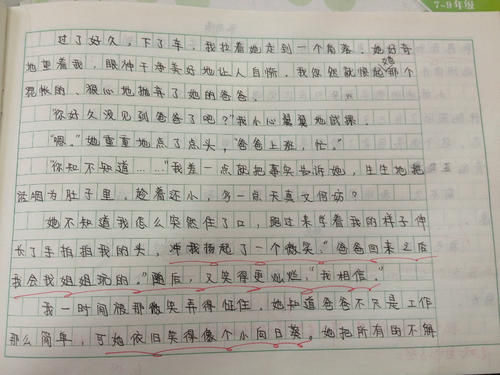 7-9年级
过了好久，下了车，我拉着她走到一个角落，她好奇
地望着我，眼神干净美好地让人自惭，我忽然就恨起那个
混帐的、狠心地抛弃了她的爸爸。
"你好久没见到爸爸了吧？"我小心翼翼地试探。
"嗯。"她重重地点了点头，"爸爸上班，忙。"
"你知不知道……"我差一点就把事实告诉她，生生地把
话咽为肚子里。趁着还小，多一点天真又何妨？
她不知道我怎么突然住了口，跑过来学着我的样子伸
长了手拍拍我的头，冲我扬起了一个微笑。"爸爸回来之后
我会找姐姐玩的。"随后，又笑得更灿烂。"我相信。"
我一时间被那微笑弄得怔住，她知道爸爸不只是工作
那么简单，可她依旧笑得像个小向日葵。她把所有的不解